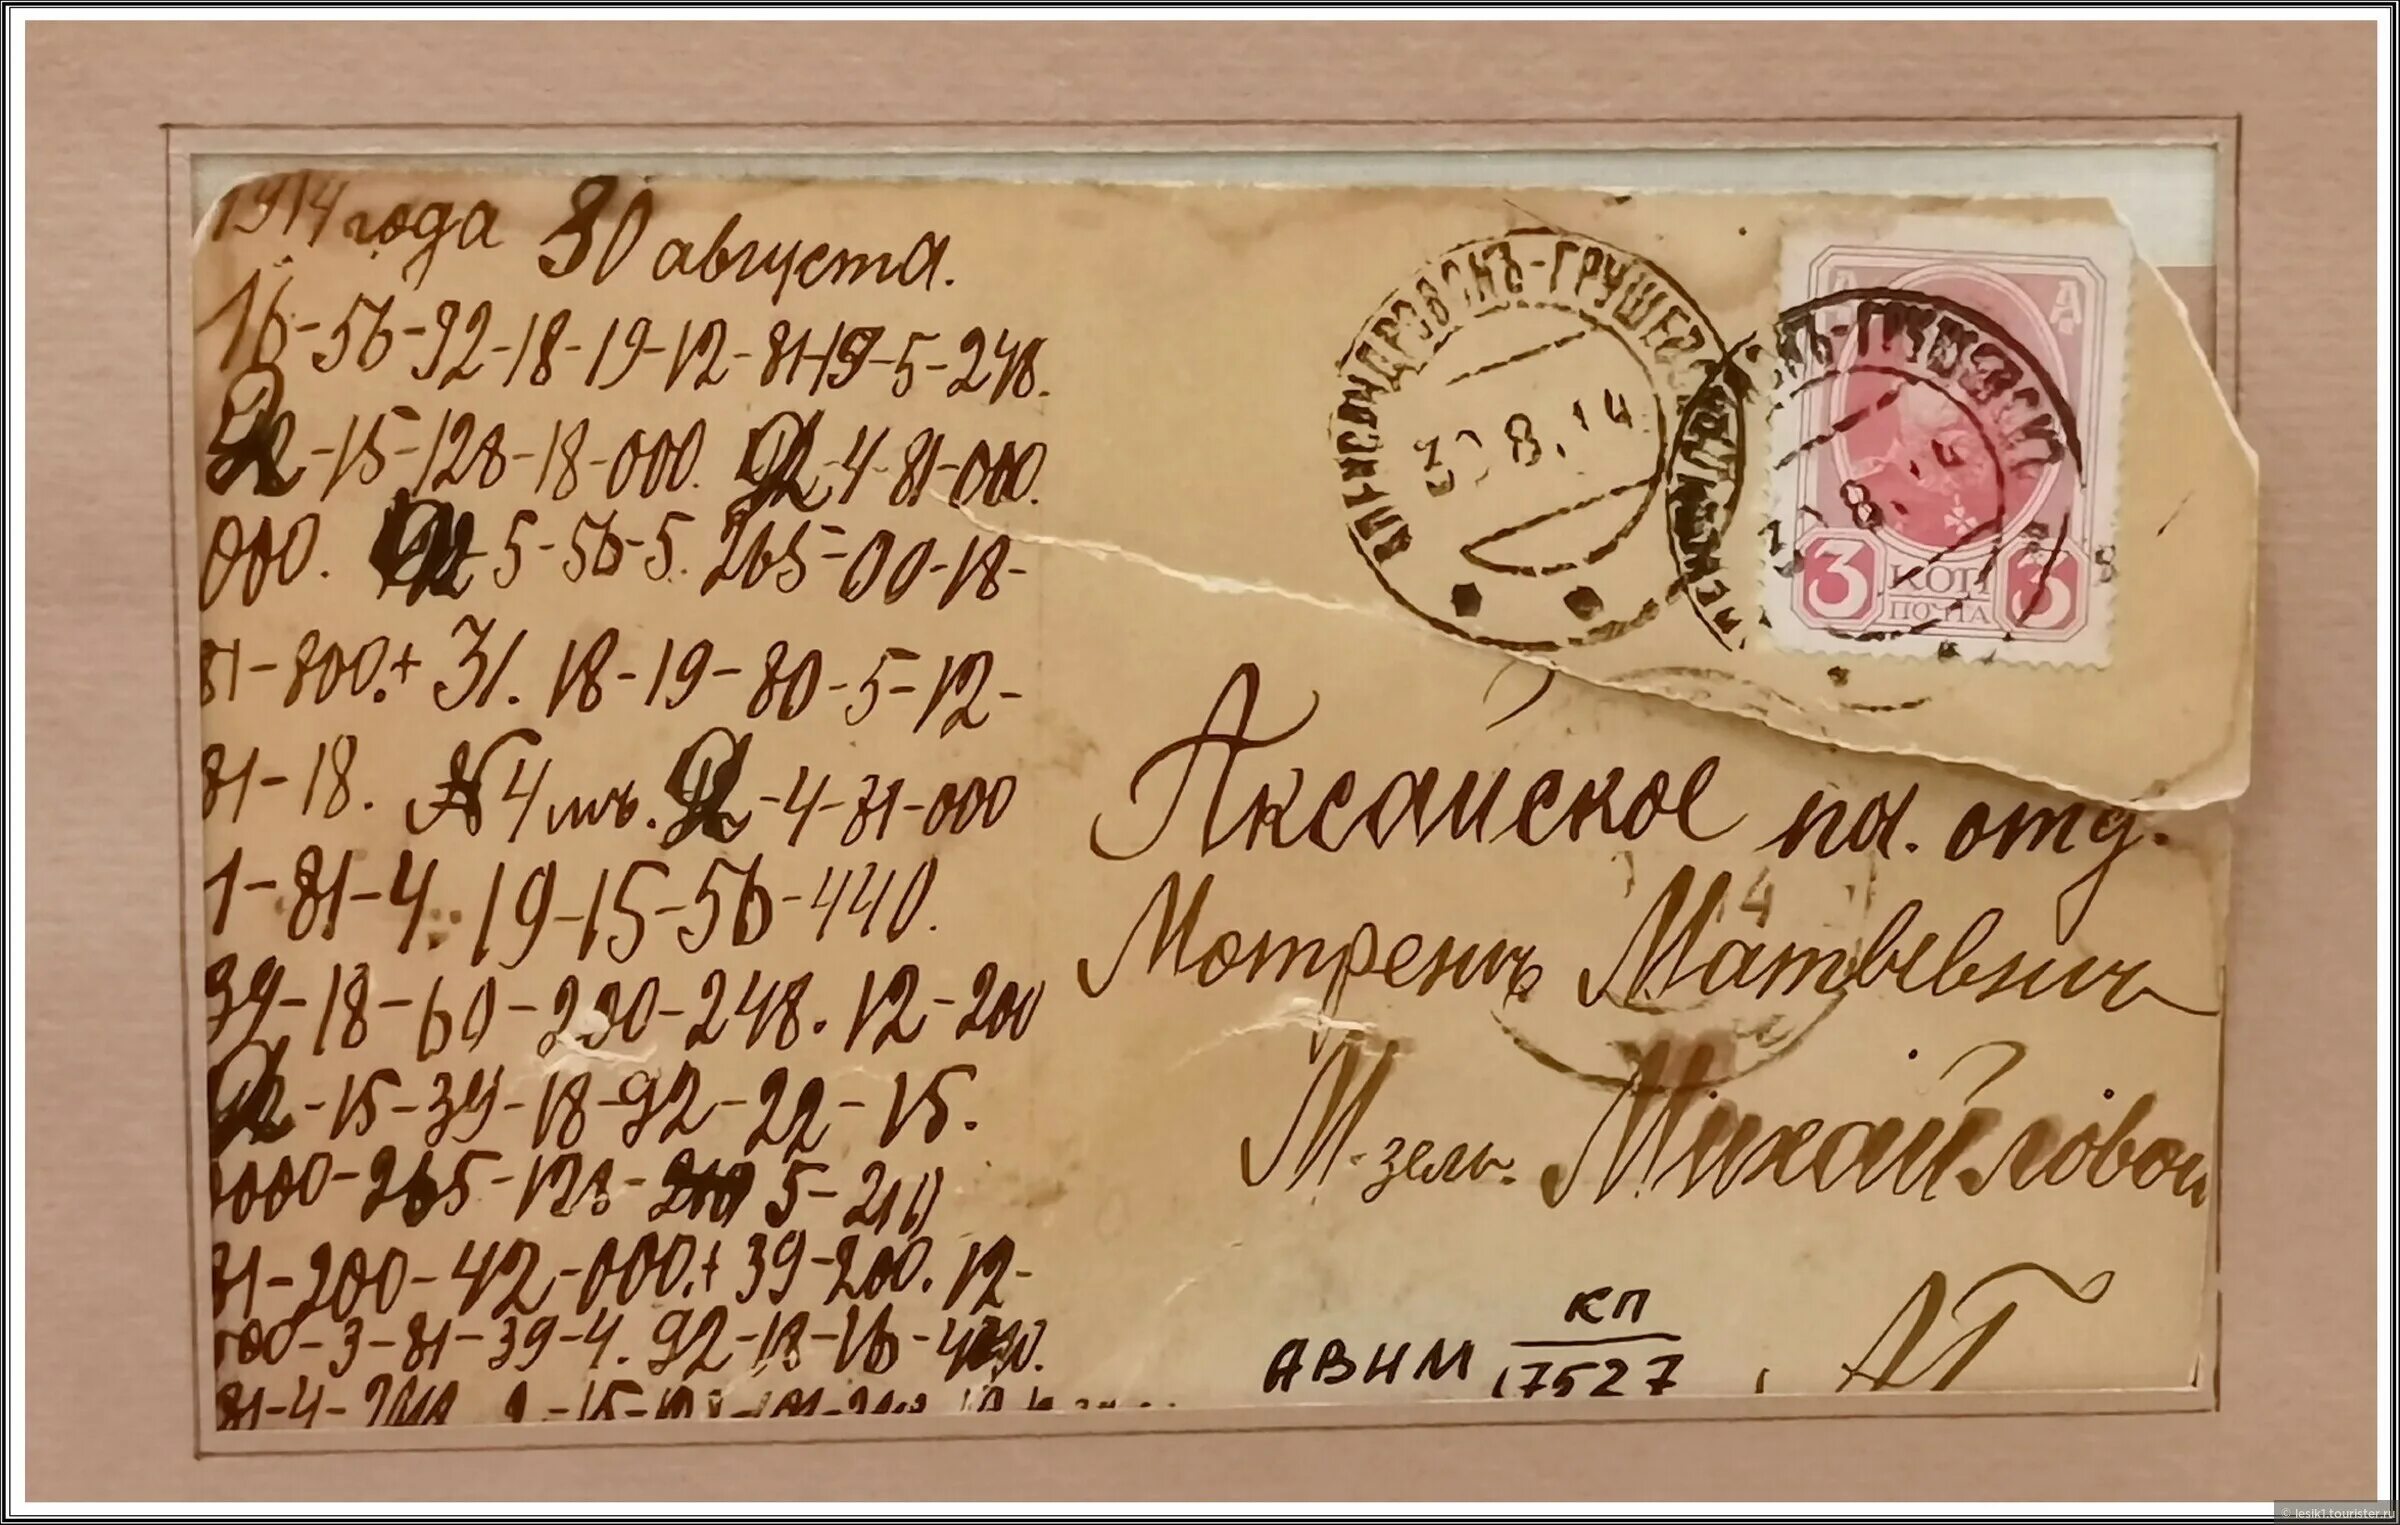 1914 года 30 августа.
16-56-92-18-19-12-81-19-5-248.
92-15-128-18-000. 92-4-81-000.
000. 92-5-56-5. 265-00-18-
81-800.+ 31. 18-19-80-5-12-
81-18. № 4 мъ. 92-4-31-000
1-81-4. 19-15-56-440.
39-18-60-230-248. 12-200
92-15-39-18-92-22-15.
000-265-128-210 5-210
81-200-42-000.+ 39-200. 12-
100-3-81-39-4. 92-18-16-
81-4-
АЛЕКСАНДРОВСКЪ-ГРУШЕВСК
30 8.14
3 КОП 3
ПОЧТА
Аксайское по. отд.
Мотренъ Матвѣвнъ
М-зель. Михайловой
АВИМ КП
17527
АГ
© lesik1.tourister.ru